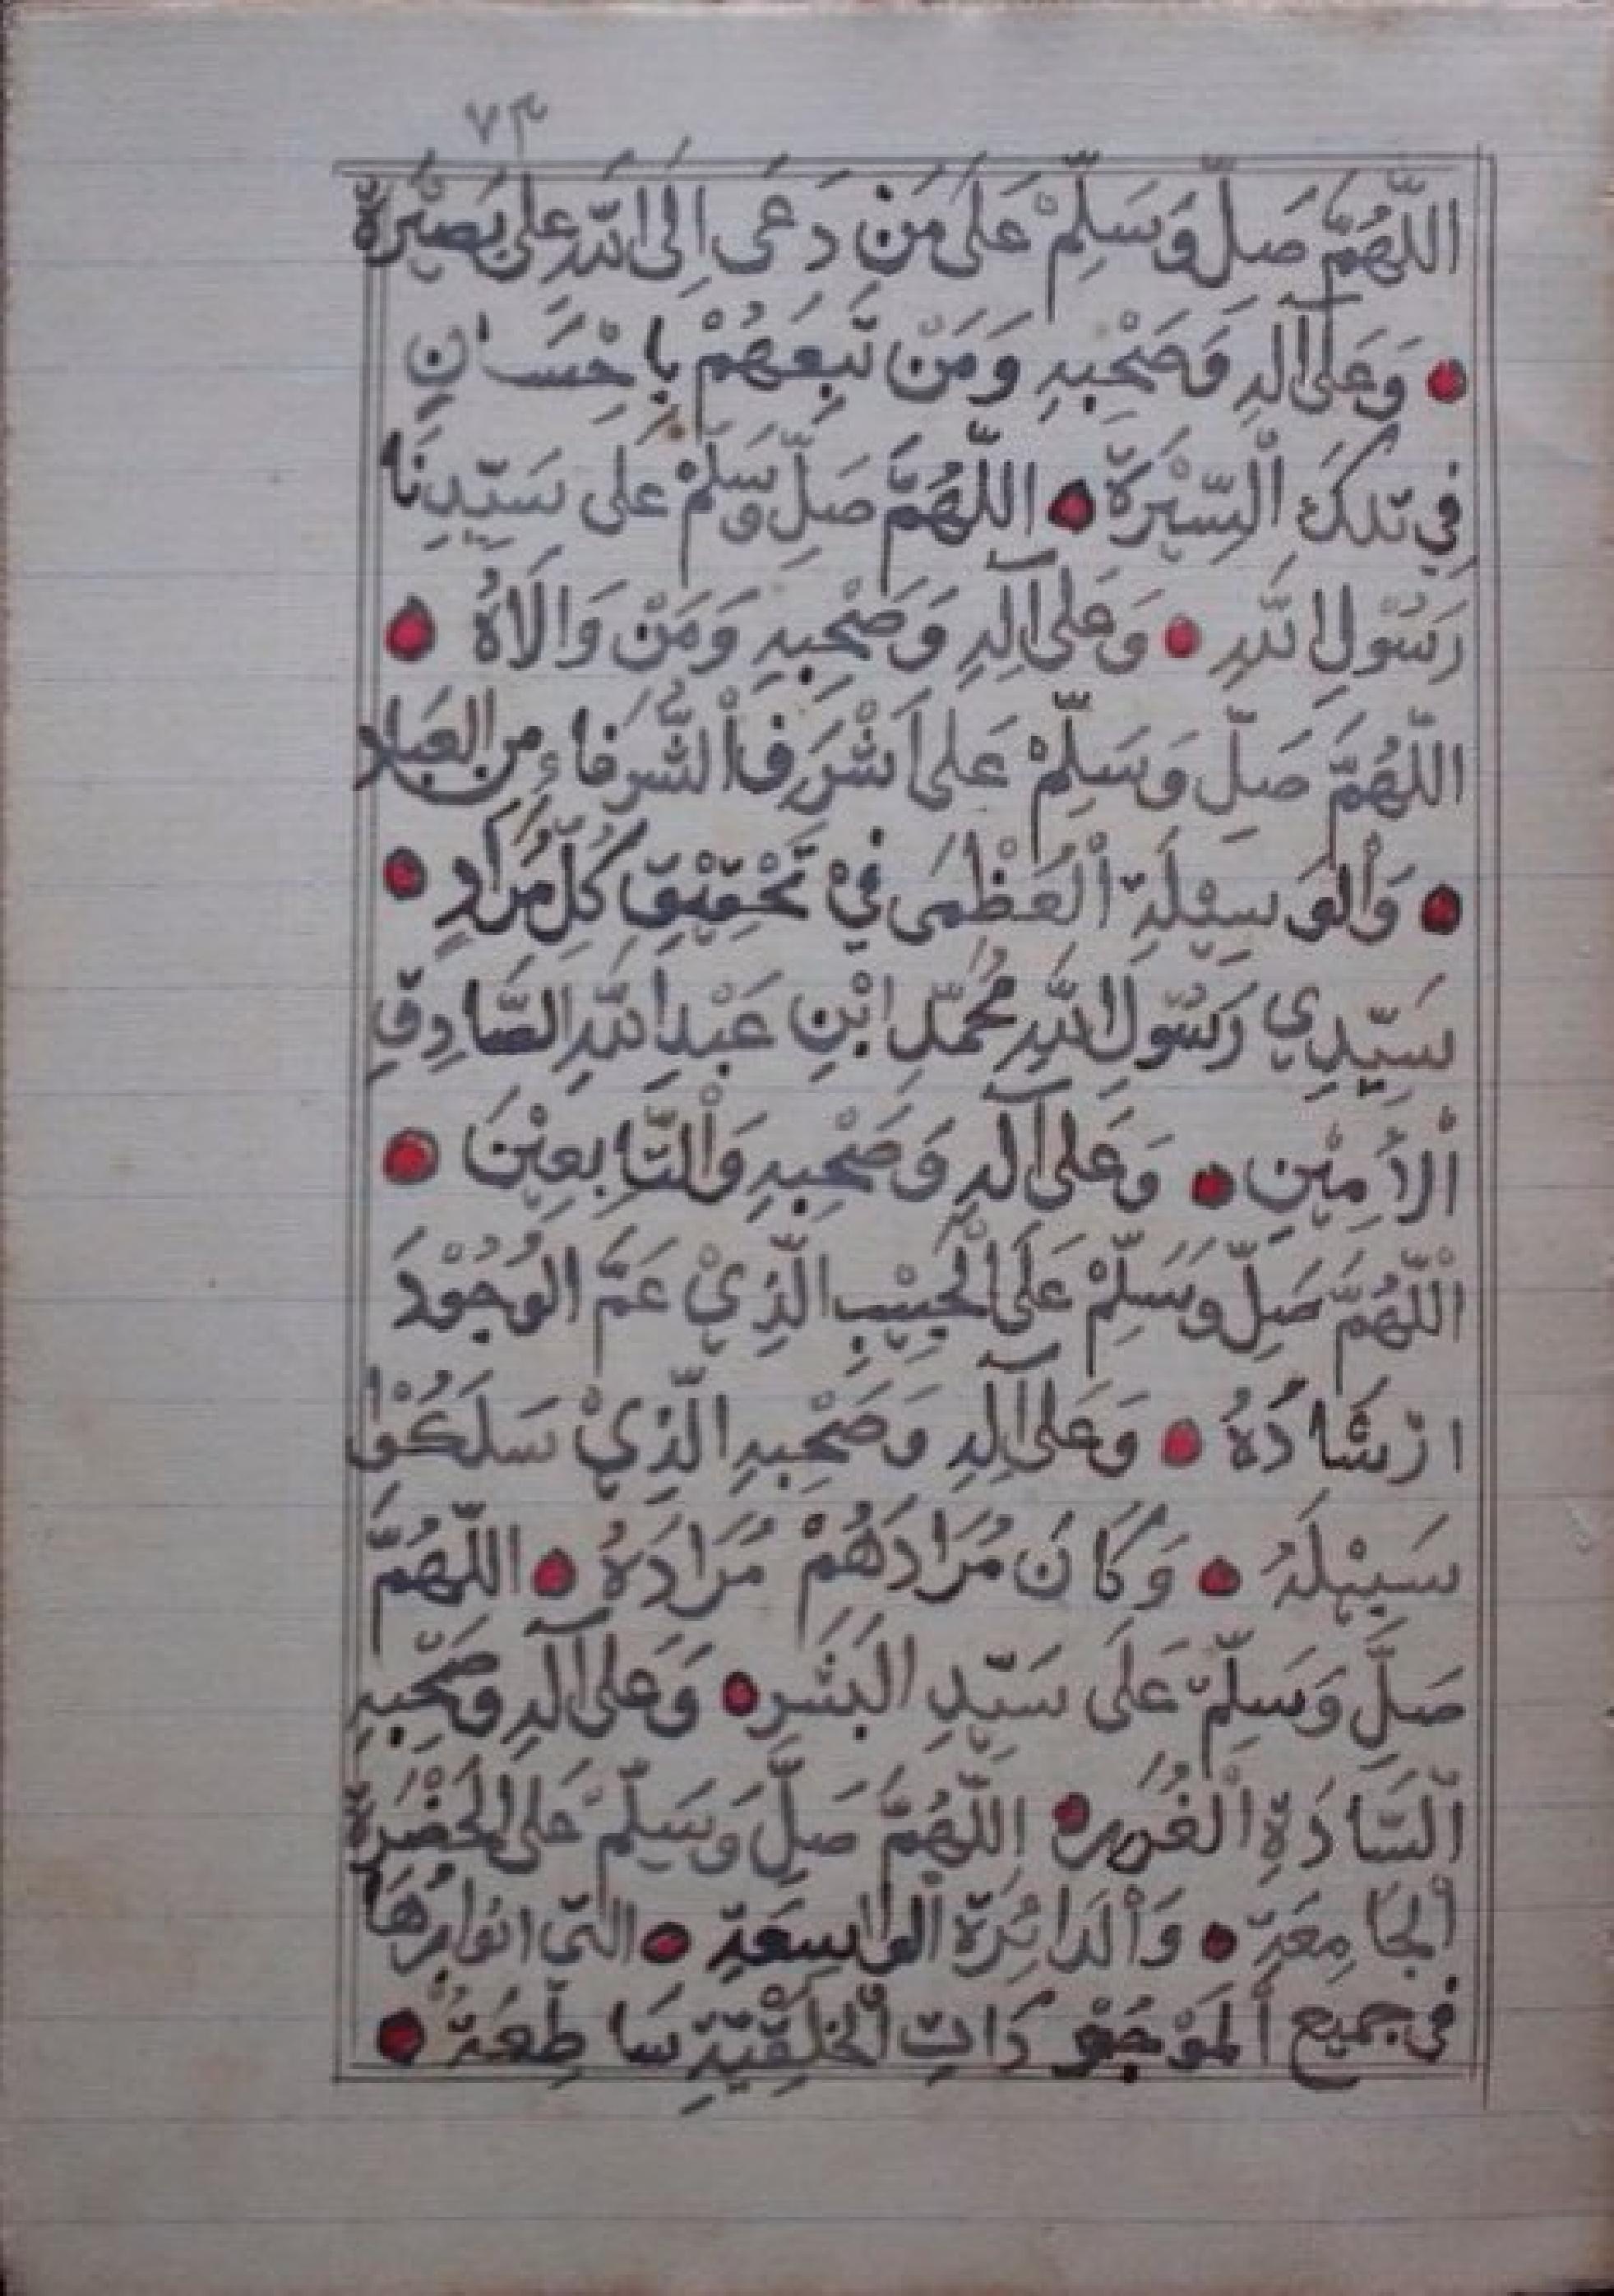 ٧٣
اللَّهُمَّ صَلِّ وَسَلِّمْ عَلَى مَنْ دَعَى اِلَى اللّٰهِ عَلَى بَصِيْرَةٍ
● وَعَلَى آلِهِ وَصَحْبِهِ وَمَنْ تَبِعَهُمْ بِاِحْسَانٍ
فِي تِلْكَ الْسِّيْرَةِ ● اللَّهُمَّ صَلِّ وَسَلِّمْ عَلَى سَيِّدِنَا
رَسُوْلِ اللّٰهِ ● وَعَلَى آلِهِ وَصَحْبِهِ وَمَنْ وَالَاهُ ●
اللَّهُمَّ صَلِّ وَسَلِّمْ عَلَى اَشْرَفِ الْشُّرَفَاءِ مِنَ العِبَادِ
● وَالْوَسِيْلَةِ الْعُظْمَى فِيْ تَحْقِيْقِ كُلِّ مُرَادٍ ●
سَيِّدِي رَسُوْلِ اللّٰهِ مُحَمَّدِ ابْنِ عَبْدِ اللّٰهِ الصَّادِقِ
الْاَمِيْنِ ● وَعَلَى آلِهِ وَصَحْبِهِ وَالْتَّابِعِيْنَ ●
اللَّهُمَّ صَلِّ وَسَلِّمْ عَلَى الْحَبِيْبِ الَّذِيْ عَمَّ الوُجُوْدَ
اِرْشَادُهُ ● وَعَلَى آلِهِ وَصَحْبِهِ الَّذِيْ سَلَكُوْا
سَبِيْلَهُ ● وَكَانَ مُرَادُهُمْ مُرَادَهُ ● اللَّهُمَّ
صَلِّ وَسَلِّمْ عَلَى سَيِّدِ البَشَرِ ● وَعَلَى آلِهِ وَصَحْبِهِ
الْسَّادَةِ الْغُرَرِ ● اللَّهُمَّ صَلِّ وَسَلِّمْ عَلَى الْحَضْرَةِ
الْجَامِعَةِ ● وَالْدَائِرَةِ الْوَاسِعَةِ ● التي انوارُهَا
في جميع الْمَوْجُوْدَاتِ الْخَلْقِيَّةِ سَاطِعَةٌ ●